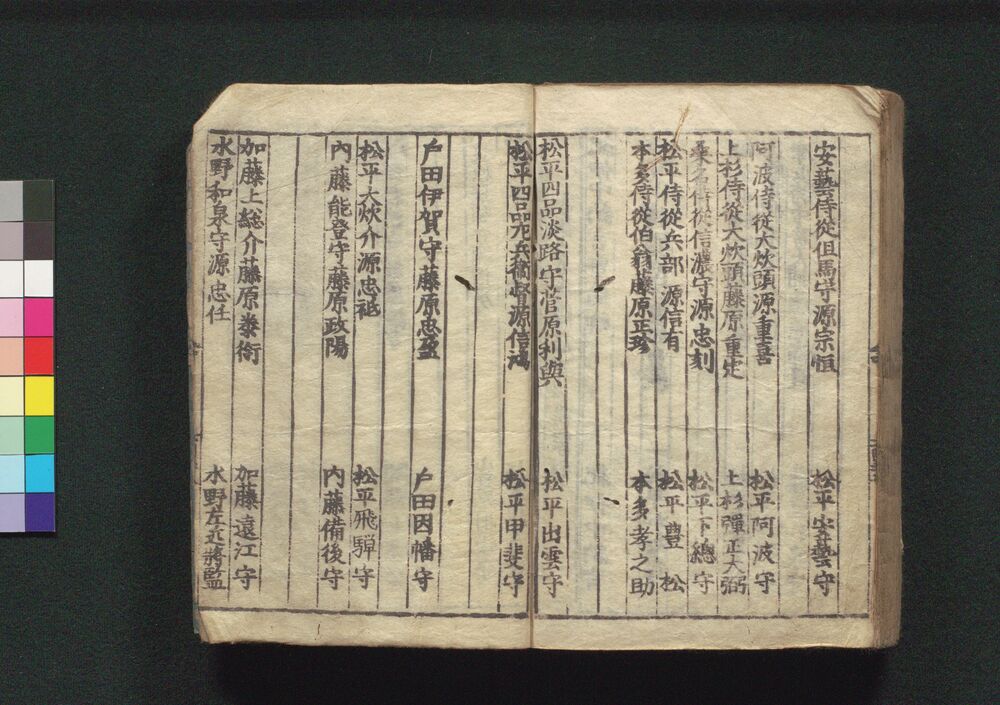 安藝侍從但馬守源宗恒　松平安藝守
阿波侍從大炊頭源重喜　松平阿波守
上杉侍從大炊頭藤原重定　上杉彈正大弼
桑名侍從信濃守源忠刻　松平下總守
松平侍從兵部源信有　松平豊松
本多侍從伯耆藤原正珍　本多孝之助
松平四品淡路守菅原利與　松平出雲守
松平四品兵衛督源信鴻　松平甲斐守
戸田伊賀守藤原忠盈　戸田因幡守
松平大炊介源忠祗　松平飛騨守
內藤能登守藤原政陽　內藤備後守
加藤上総介藤原泰衑　加藤遠江守
水野和泉守源忠任　水野左近將監